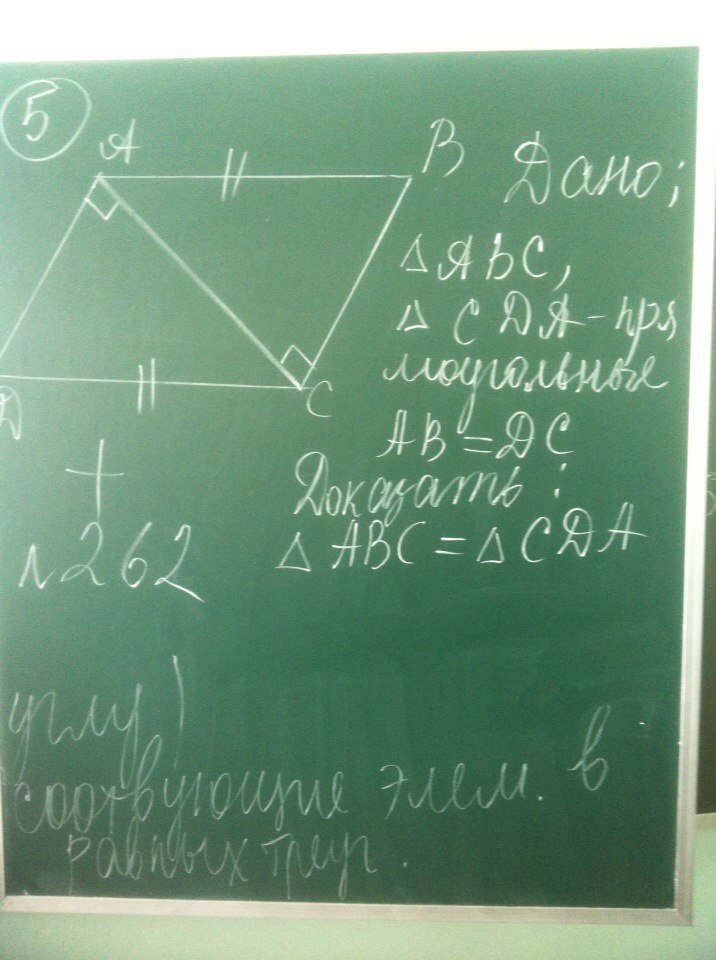 5
A
B
D
C
Дано;
△ABC,
△CDA - пря
моугольные
AB = DC
Доказать:
△ABC = △CDA
+
№262
углу)
соотвующие элем. в
равных треуг.